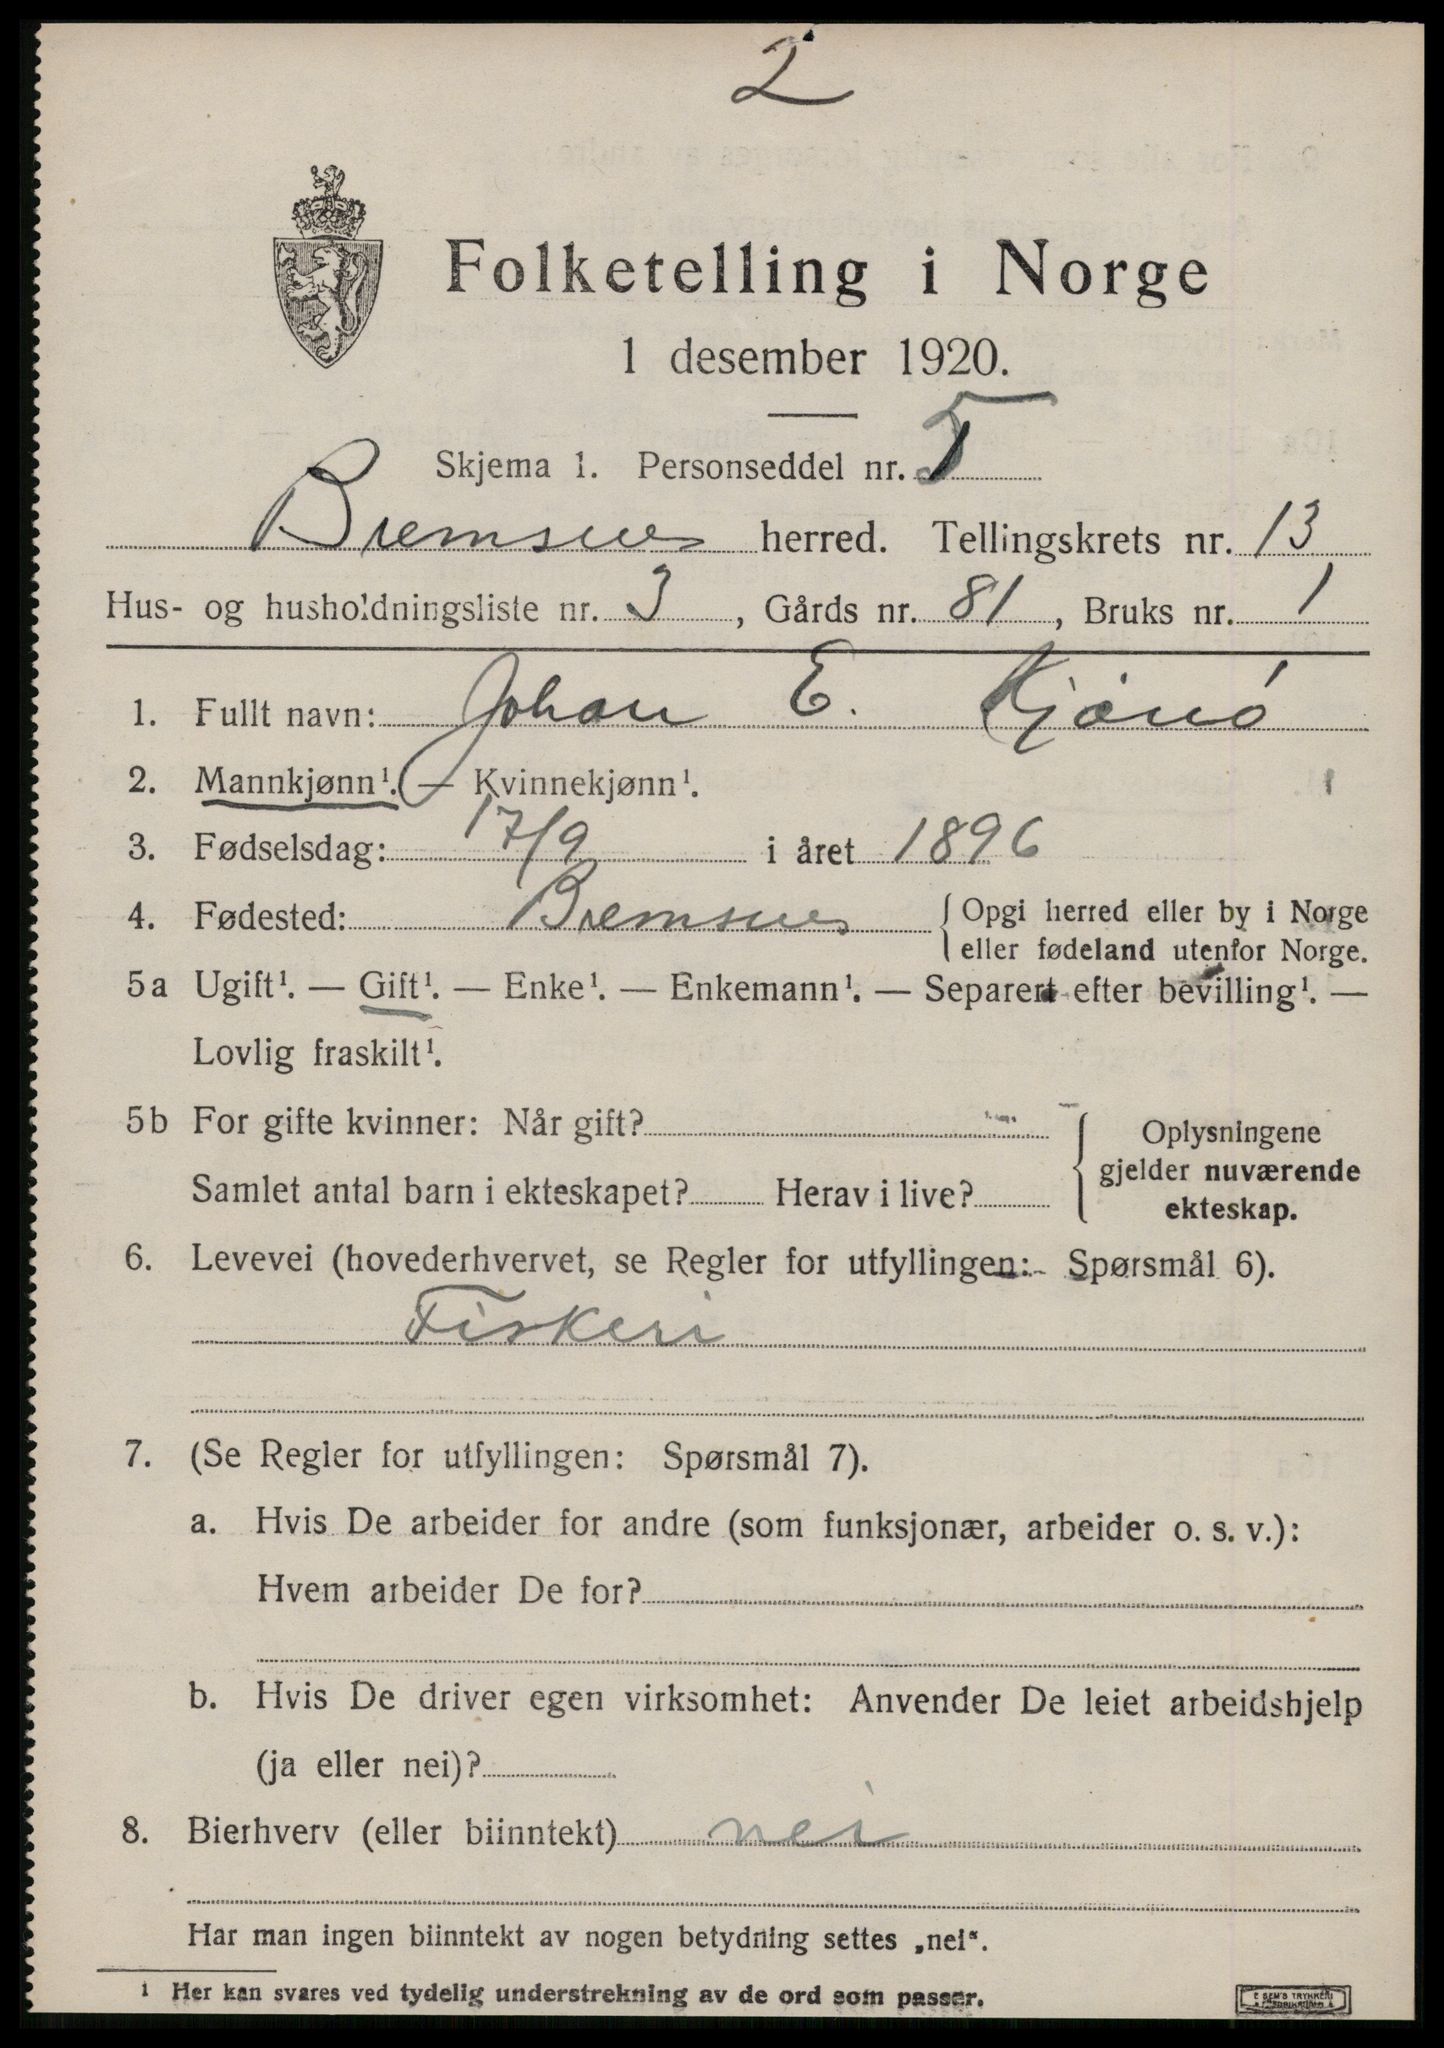 2
Folketelling i Norge
1 desember 1920.
Skjema 1. Personseddel nr. 5
Bremsnes herred. Tellingskrets nr. 13
Hus- og husholdningsliste nr. 3, Gårds nr. 81, Bruks nr. 1
1. Fullt navn: Johan E. Kjønø
2. Mannkjønn¹. — Kvinnekjønn¹.
3. Fødselsdag: 17/9 i året 1896
4. Fødested: Bremsnes { Opgi herred eller by i Norge
eller fødeland utenfor Norge.
5a Ugift¹. — Gift¹. — Enke¹. — Enkemann¹. — Separert efter bevilling¹. —
Lovlig fraskilt¹.
5b For gifte kvinner: Når gift?
Samlet antal barn i ekteskapet? Herav i live?
Oplysningene
gjelder nuværende
ekteskap.
6. Levevei (hovederhvervet, se Regler for utfyllingen: Spørsmål 6).
Fiskeri
7. (Se Regler for utfyllingen: Spørsmål 7).
a. Hvis De arbeider for andre (som funksjonær, arbeider o. s. v.):
Hvem arbeider De for?
b. Hvis De driver egen virksomhet: Anvender De leiet arbeidshjelp
(ja eller nei)?
8. Bierhverv (eller biinntekt) nei
Har man ingen biinntekt av nogen betydning settes „nei“.
¹ Her kan svares ved tydelig understrekning av de ord som passer.